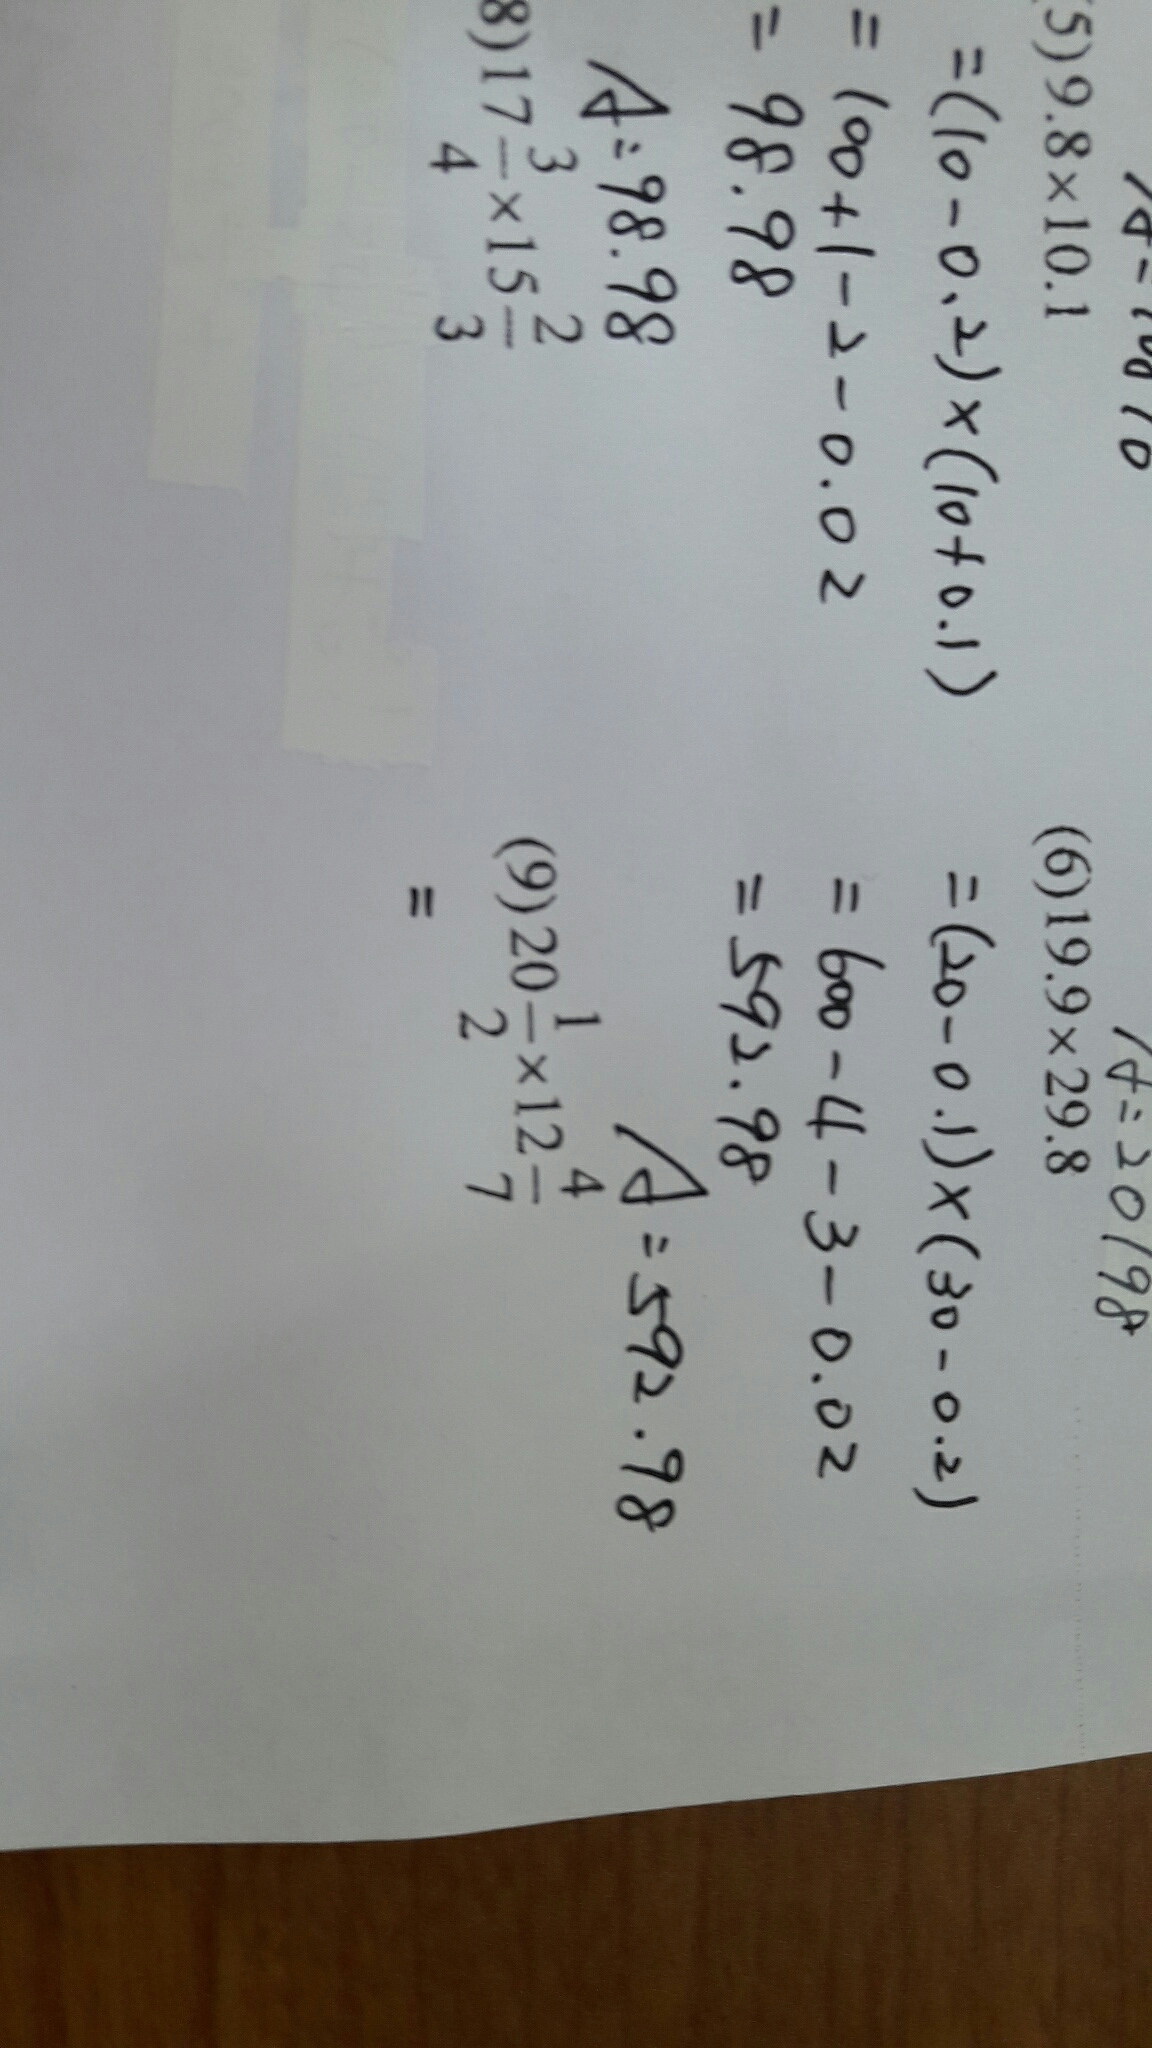 A=20198
(5)9.8×10.1
=(10-0.2)×(10+0.1)
=100+1-2-0.02
=98.98
A=98.98
(6)19.9×29.8
=(20-0.1)×(30-0.2)
=600-4-3-0.02
=592.98
A=592.98
8)17 3/4 ×15 2/3
(9)20 1/2 ×12 4/7
=